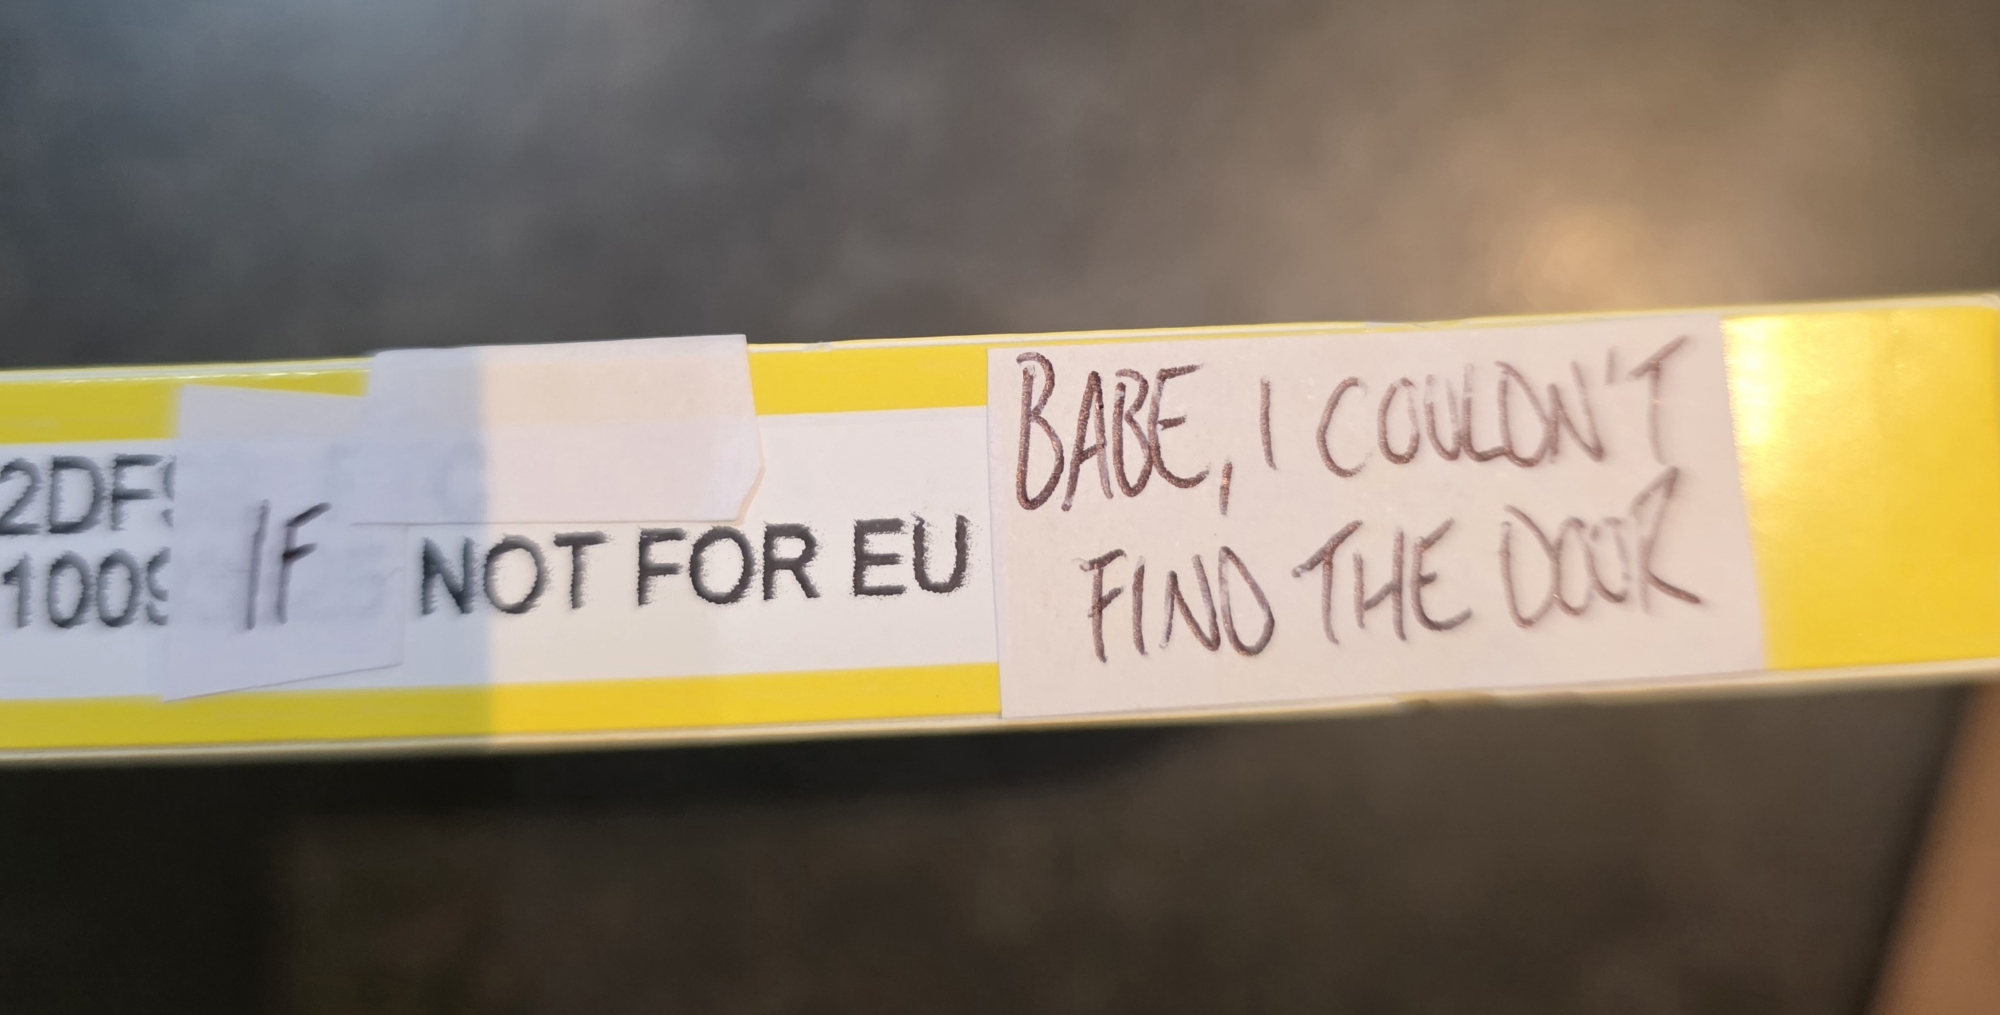 2DF
100
IF
NOT FOR EU
BABE, I COULDN'T
FIND THE DOOR